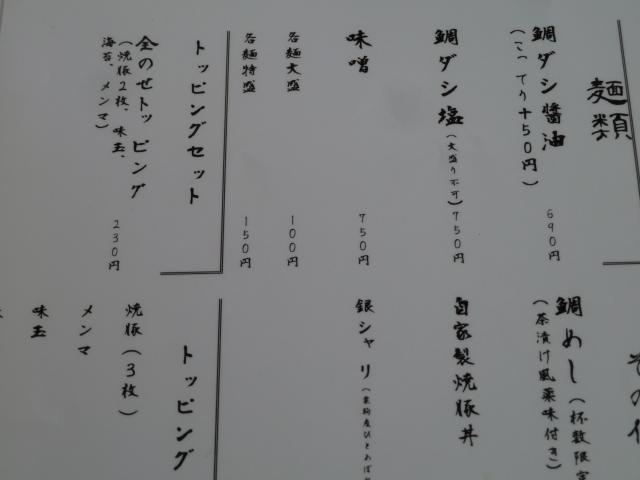 麺類
鯛ダシ醤油 690円
(こってり+50円)
鯛ダシ塩(大盛り不可)750円
味噌 750円
各麺大盛 100円
各麺特盛 150円
トッピングセット
全のせトッピング 230円
(焼豚2枚、味玉、
海苔、メンマ)
その他
鯛めし(杯数限定
(茶漬け風薬味付き)
自家製焼豚丼
銀シャリ
トッピング
焼豚(3枚)
メンマ
味玉